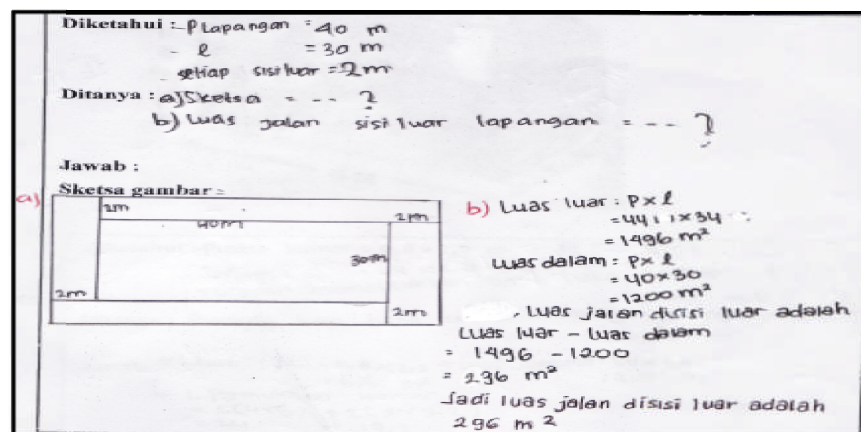 Diketahui : P Lapangan = 40 m
- l = 30 m
- setiap sisi luar = 2m
Ditanya : a) Sketsa = - - ?
b) Luas jalan sisi luar lapangan = - - ?
Jawab :
Sketsa gambar =
a)
2m
40m
2m
30m
2m
2m
b) Luas luar : P x l
= 44 x 34
= 1496 m²
Luas dalam : P x l
= 40 x 30
= 1200 m²
, Luas jalan disisi luar adalah
Luas luar - luas dalam
= 1496 - 1200
= 296 m²
Jadi luas jalan disisi luar adalah
296 m 2